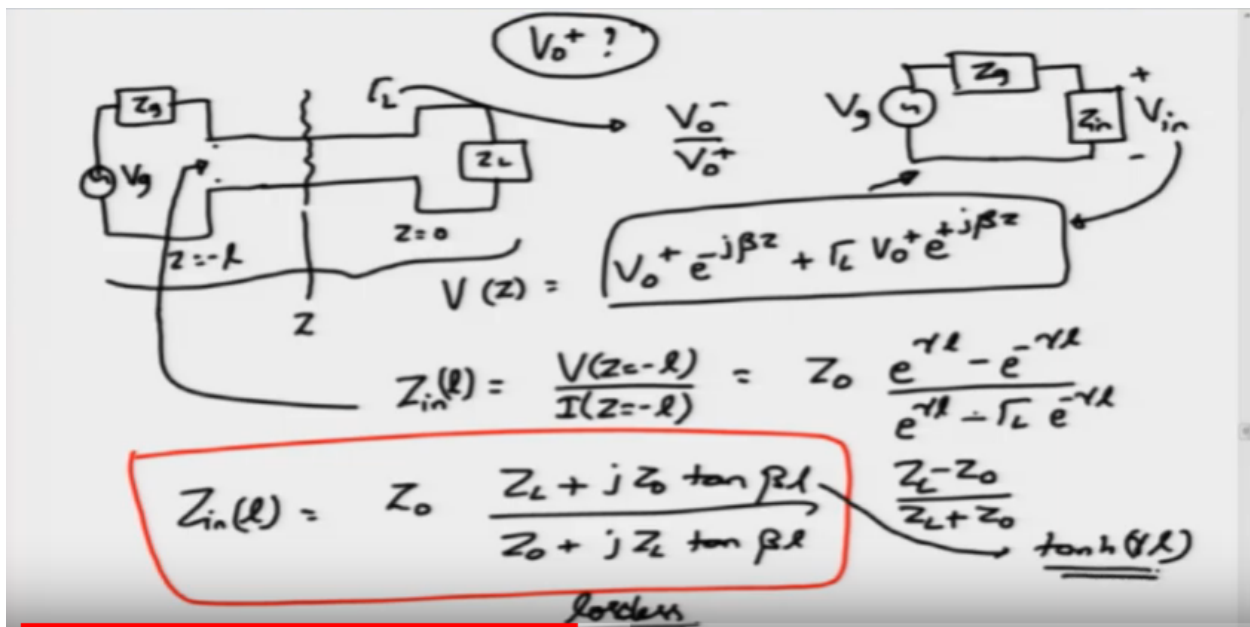 V₀⁺ ?
Zg
Vg
Γ_L
Z_L
z=-l
z=0
Z
V₀⁻ / V₀⁺
Vg
Zg
Zin
+
Vin
-
V(z) = V₀⁺ e^{-jβz} + Γ_L V₀⁺ e^{+jβz}
Zin(l) = V(z=-l) / I(z=-l) = Z₀ (e^{γl} - e^{-γl}) / (e^{γl} - Γ_L e^{-γl})
Zin(l) = Z₀ (Z_L + j Z₀ tan βl) / (Z₀ + j Z_L tan βl)
(Z_L - Z₀) / (Z_L + Z₀)
tanh(γl)
lossless